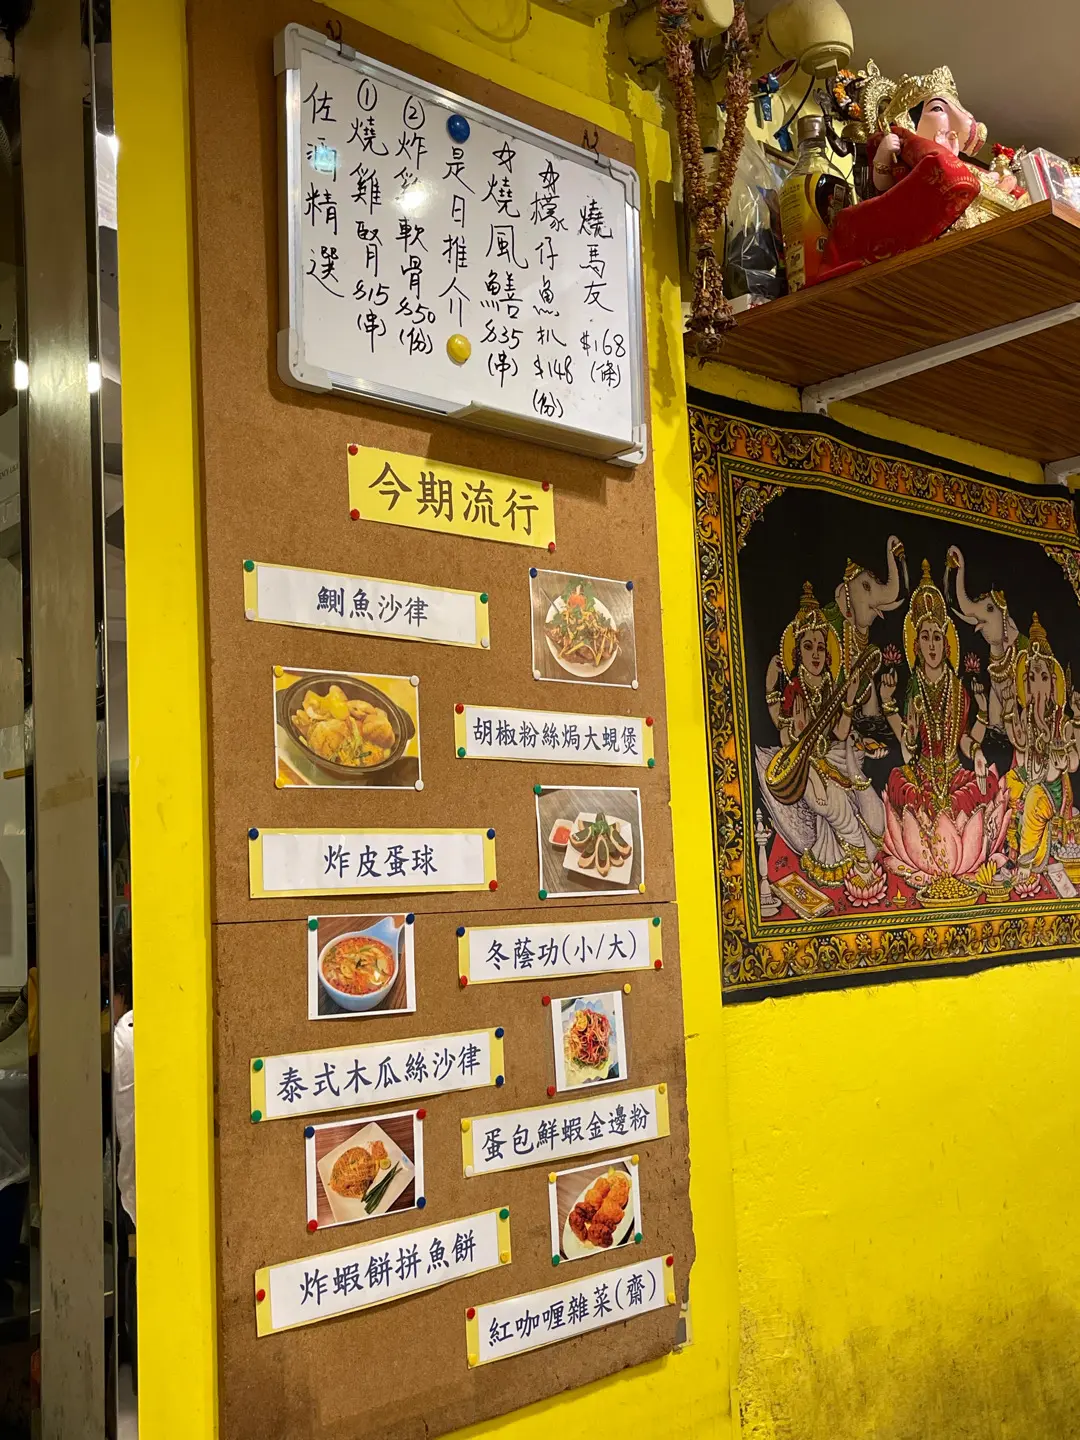 佐酒精選
①燒雞腎$15(串)
②炸雞軟骨$50(份)
是日推介
☆燒風鱔$35(串)
☆檬仔魚扒$148(份)
燒馬友$168(條)
今期流行
鰂魚沙律
胡椒粉絲焗大蜆煲
炸皮蛋球
冬蔭功(小/大)
泰式木瓜絲沙律
蛋包鮮蝦金邊粉
炸蝦餅拼魚餅
紅咖喱雜菜(齋)